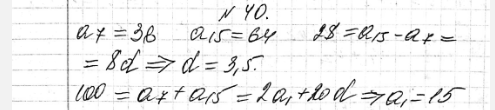 № 40.
a₇ = 36 a₁₅ = 64 28 = a₁₅ - a₇ =
= 8d ⇒ d = 3,5.
100 = a₇ + a₁₅ = 2a₁ + 20d ⇒ a₁ = 15